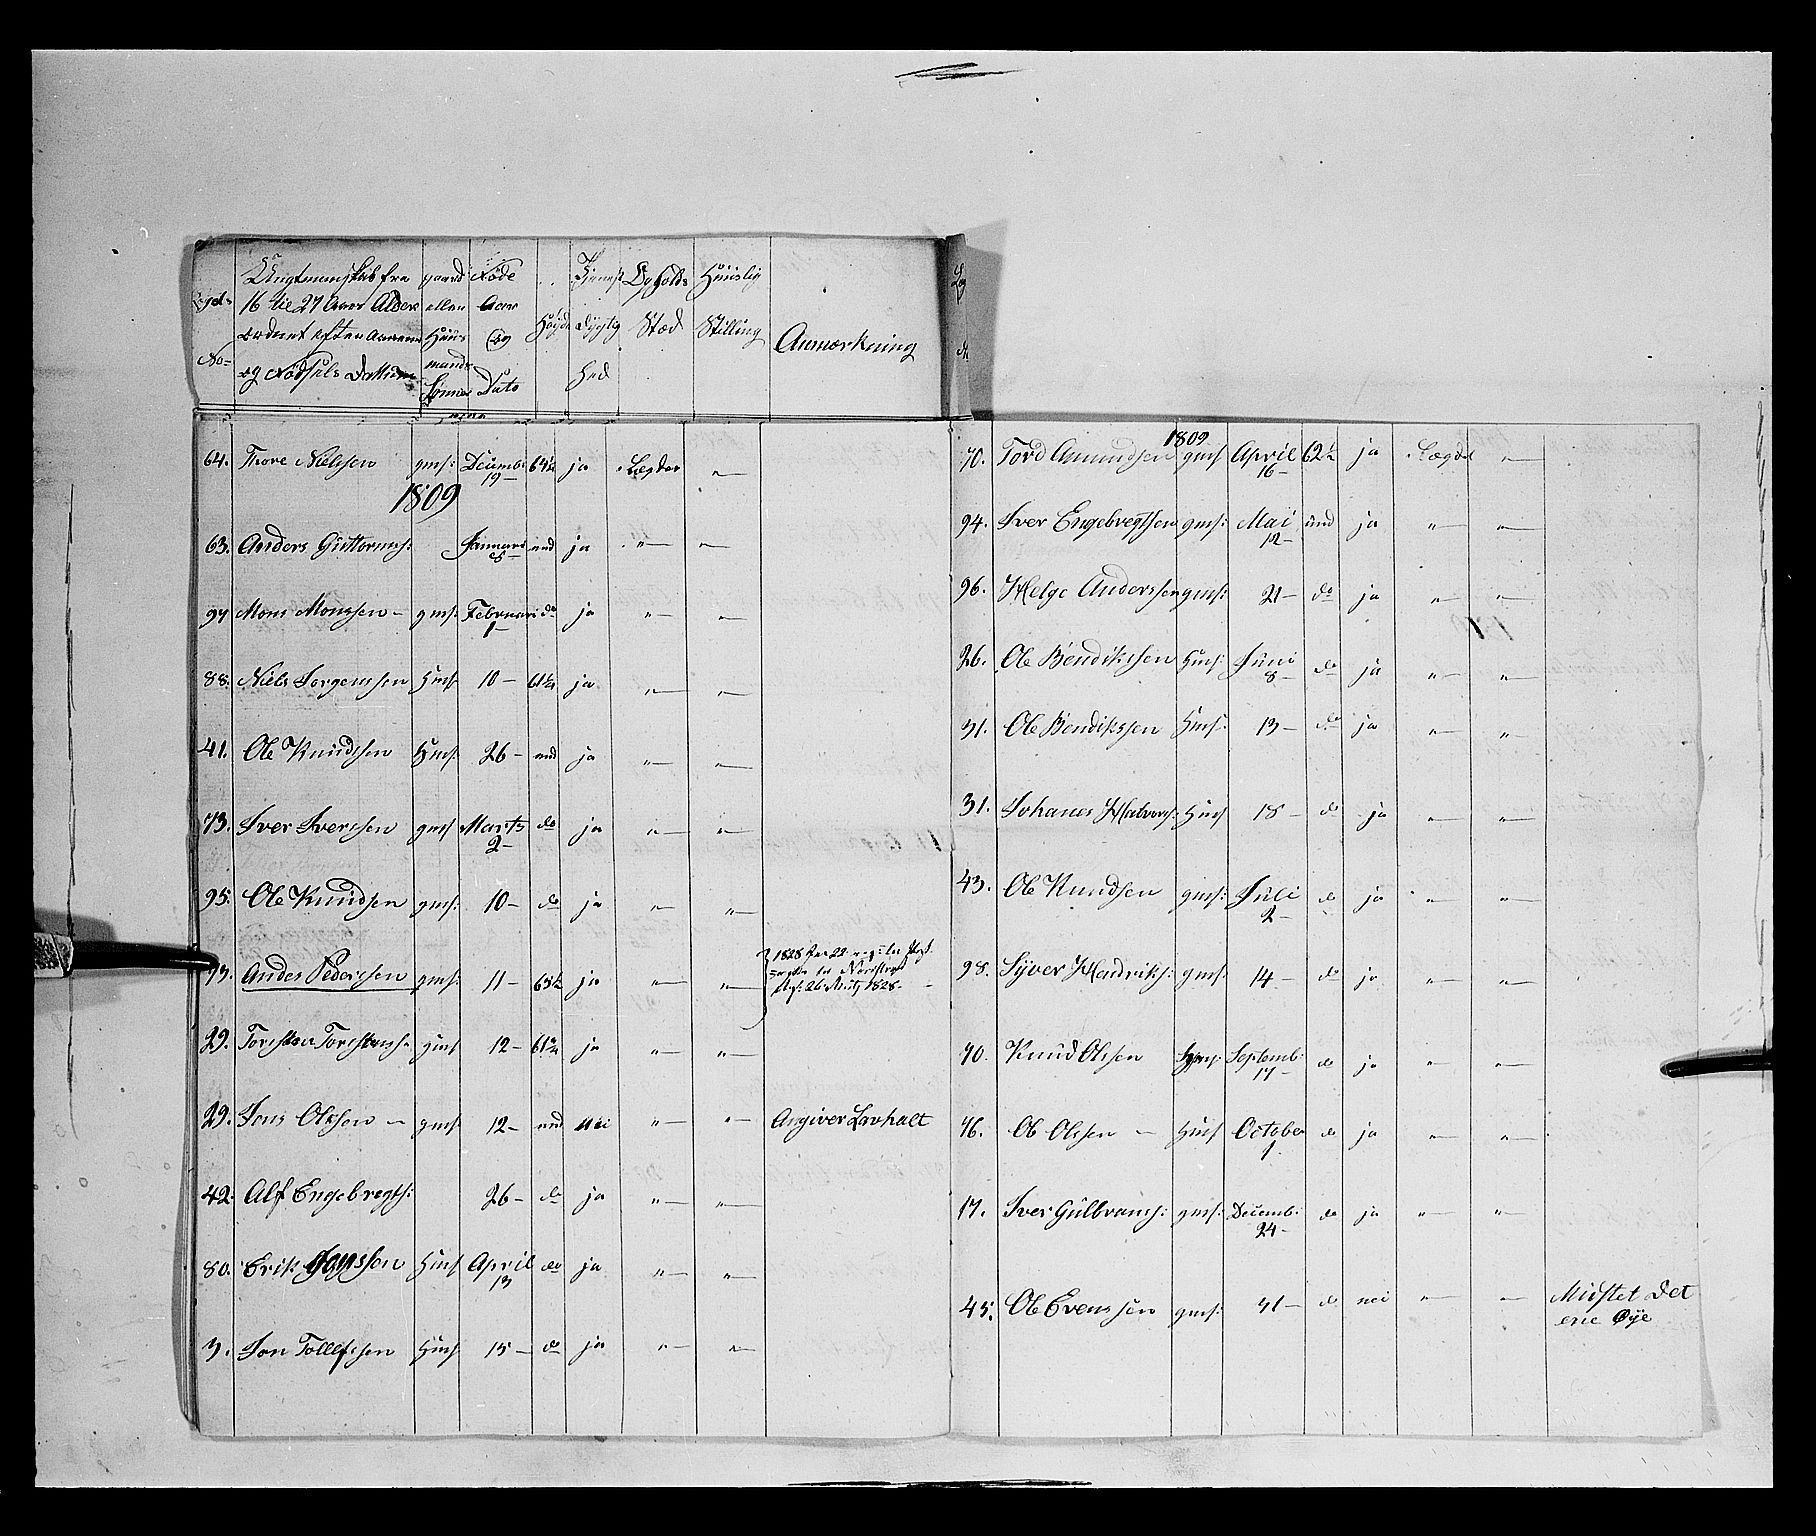 Legds No= | Ungtmanskab fra 16 til 27 Aars Alder ordnet efter Aarene og Födsels Dattum | gaard eller Huus mands Sönner | Föde Aar og Dato | Höyde | Tjeneste Dygtig hed | Opholds Stæd | Huuslig Stilling | Anmærkning
64. Thore Nielsen gms: Decemb: 19— 64½ ja Lægdet "—
1809
63. Anders Guttorms: Januari 8— und ja "— "—
97 Mons Monssen — gms: Februari 1— do ja "— "—
88. Niels Jorgenssen Hms: 10— 61¼ ja "— "—
41. Ole Knudssen Hms: 26— und ja "— "—
73. Iver Iverssen gms Marts 2— do ja "— "—
95. Ole Knudsen gms: 10— do ja "— "—
73. Andes Pederssen gms: 11— 63½ ja "— "— 1828
26 Mrtz 1828—
29. Torsten Torstens: Hms 12— 61¾ ja "— "—
29. Jens Olssen — gms 12— und nei "— "— Angiver Lavhalt
42. Alf Engebregts: 26— do ja "— "—
80. Erik Jonssen Hms April 13 do ja "— "—
3. Jon Tollefssen Hms 15— do ja "— "—
1809
70. Tord Amundsen gms April 16— 62½ ja Lægdet "—
94. Iver Engebregtsen gms: Mai 12— und ja "— "—
96. Helge Anderssen gms: 21— do ja "— "—
26. Ole Bendikssen Hms: Juni 8— do ja "— "—
31. Ole Bendikssen Hms: 13— do ja "— "—
31. Johanes Halvors: Hms 18— do ja "— "—
43. Ole Knudsen gms: Juli 2— do ja "— "—
98. Syver Hendriks: gms: 14— do ja "— "—
70. Knud Olssen gms: Septemb: 17— do ja "— "—
76. Ole Olssen — Hms October 1 do ja "— "—
17. Iver Gulbrans: gms: Decemb: 24— do ja "— "—
45. Ole Evenssen gms: 31— do nei "— "— Mistet Det
ene Øye